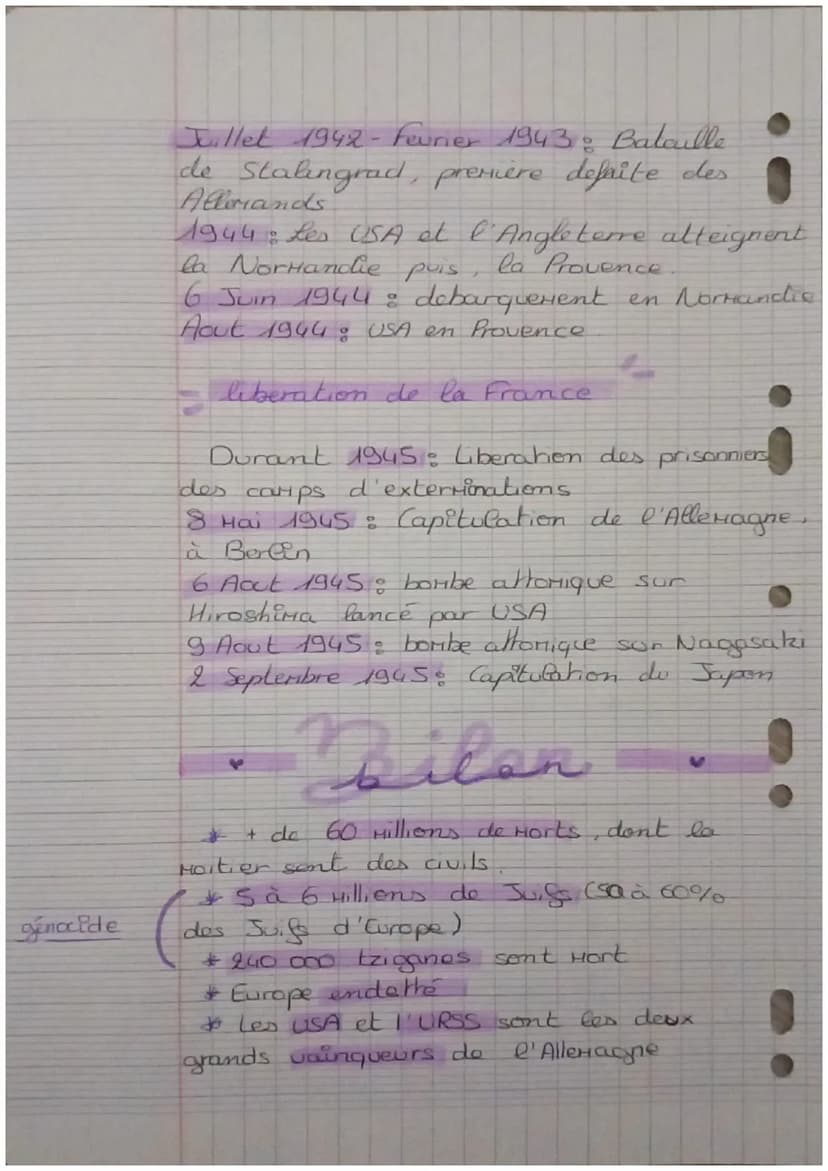 Juillet 1942 - Fevrier 1943 : Bataille
de Stalingrad, première defaite des
Allemands
1944 : Les USA et l'Angleterre atteignent
la Normandie puis, la Provence.
6 Juin 1944 : debarquement en Normandie
Aout 1944 : USA en Provence
= liberation de la France
Durant 1945 : Liberation des prisonniers
des camps d'exterminations
8 Mai 1945 : Capitulation de l'Allemagne,
à Berlin
6 Aout 1945 : bombe attomique sur
Hiroshima lancé par USA
9 Aout 1945 : bombe attomique sur Nagasaki
2 Septembre 1945 : Capitulation du Japon
bilan
* + de 60 millions de morts, dont la
moitier sont des civils.
* 5 à 6 millions de Juifs (50 à 60%
génocide
des Juifs d'Europe)
* 240 000 tziganes sont mort
* Europe endetté
* Les USA et l'URSS sont les deux
grands vainqueurs de l'Allemagne